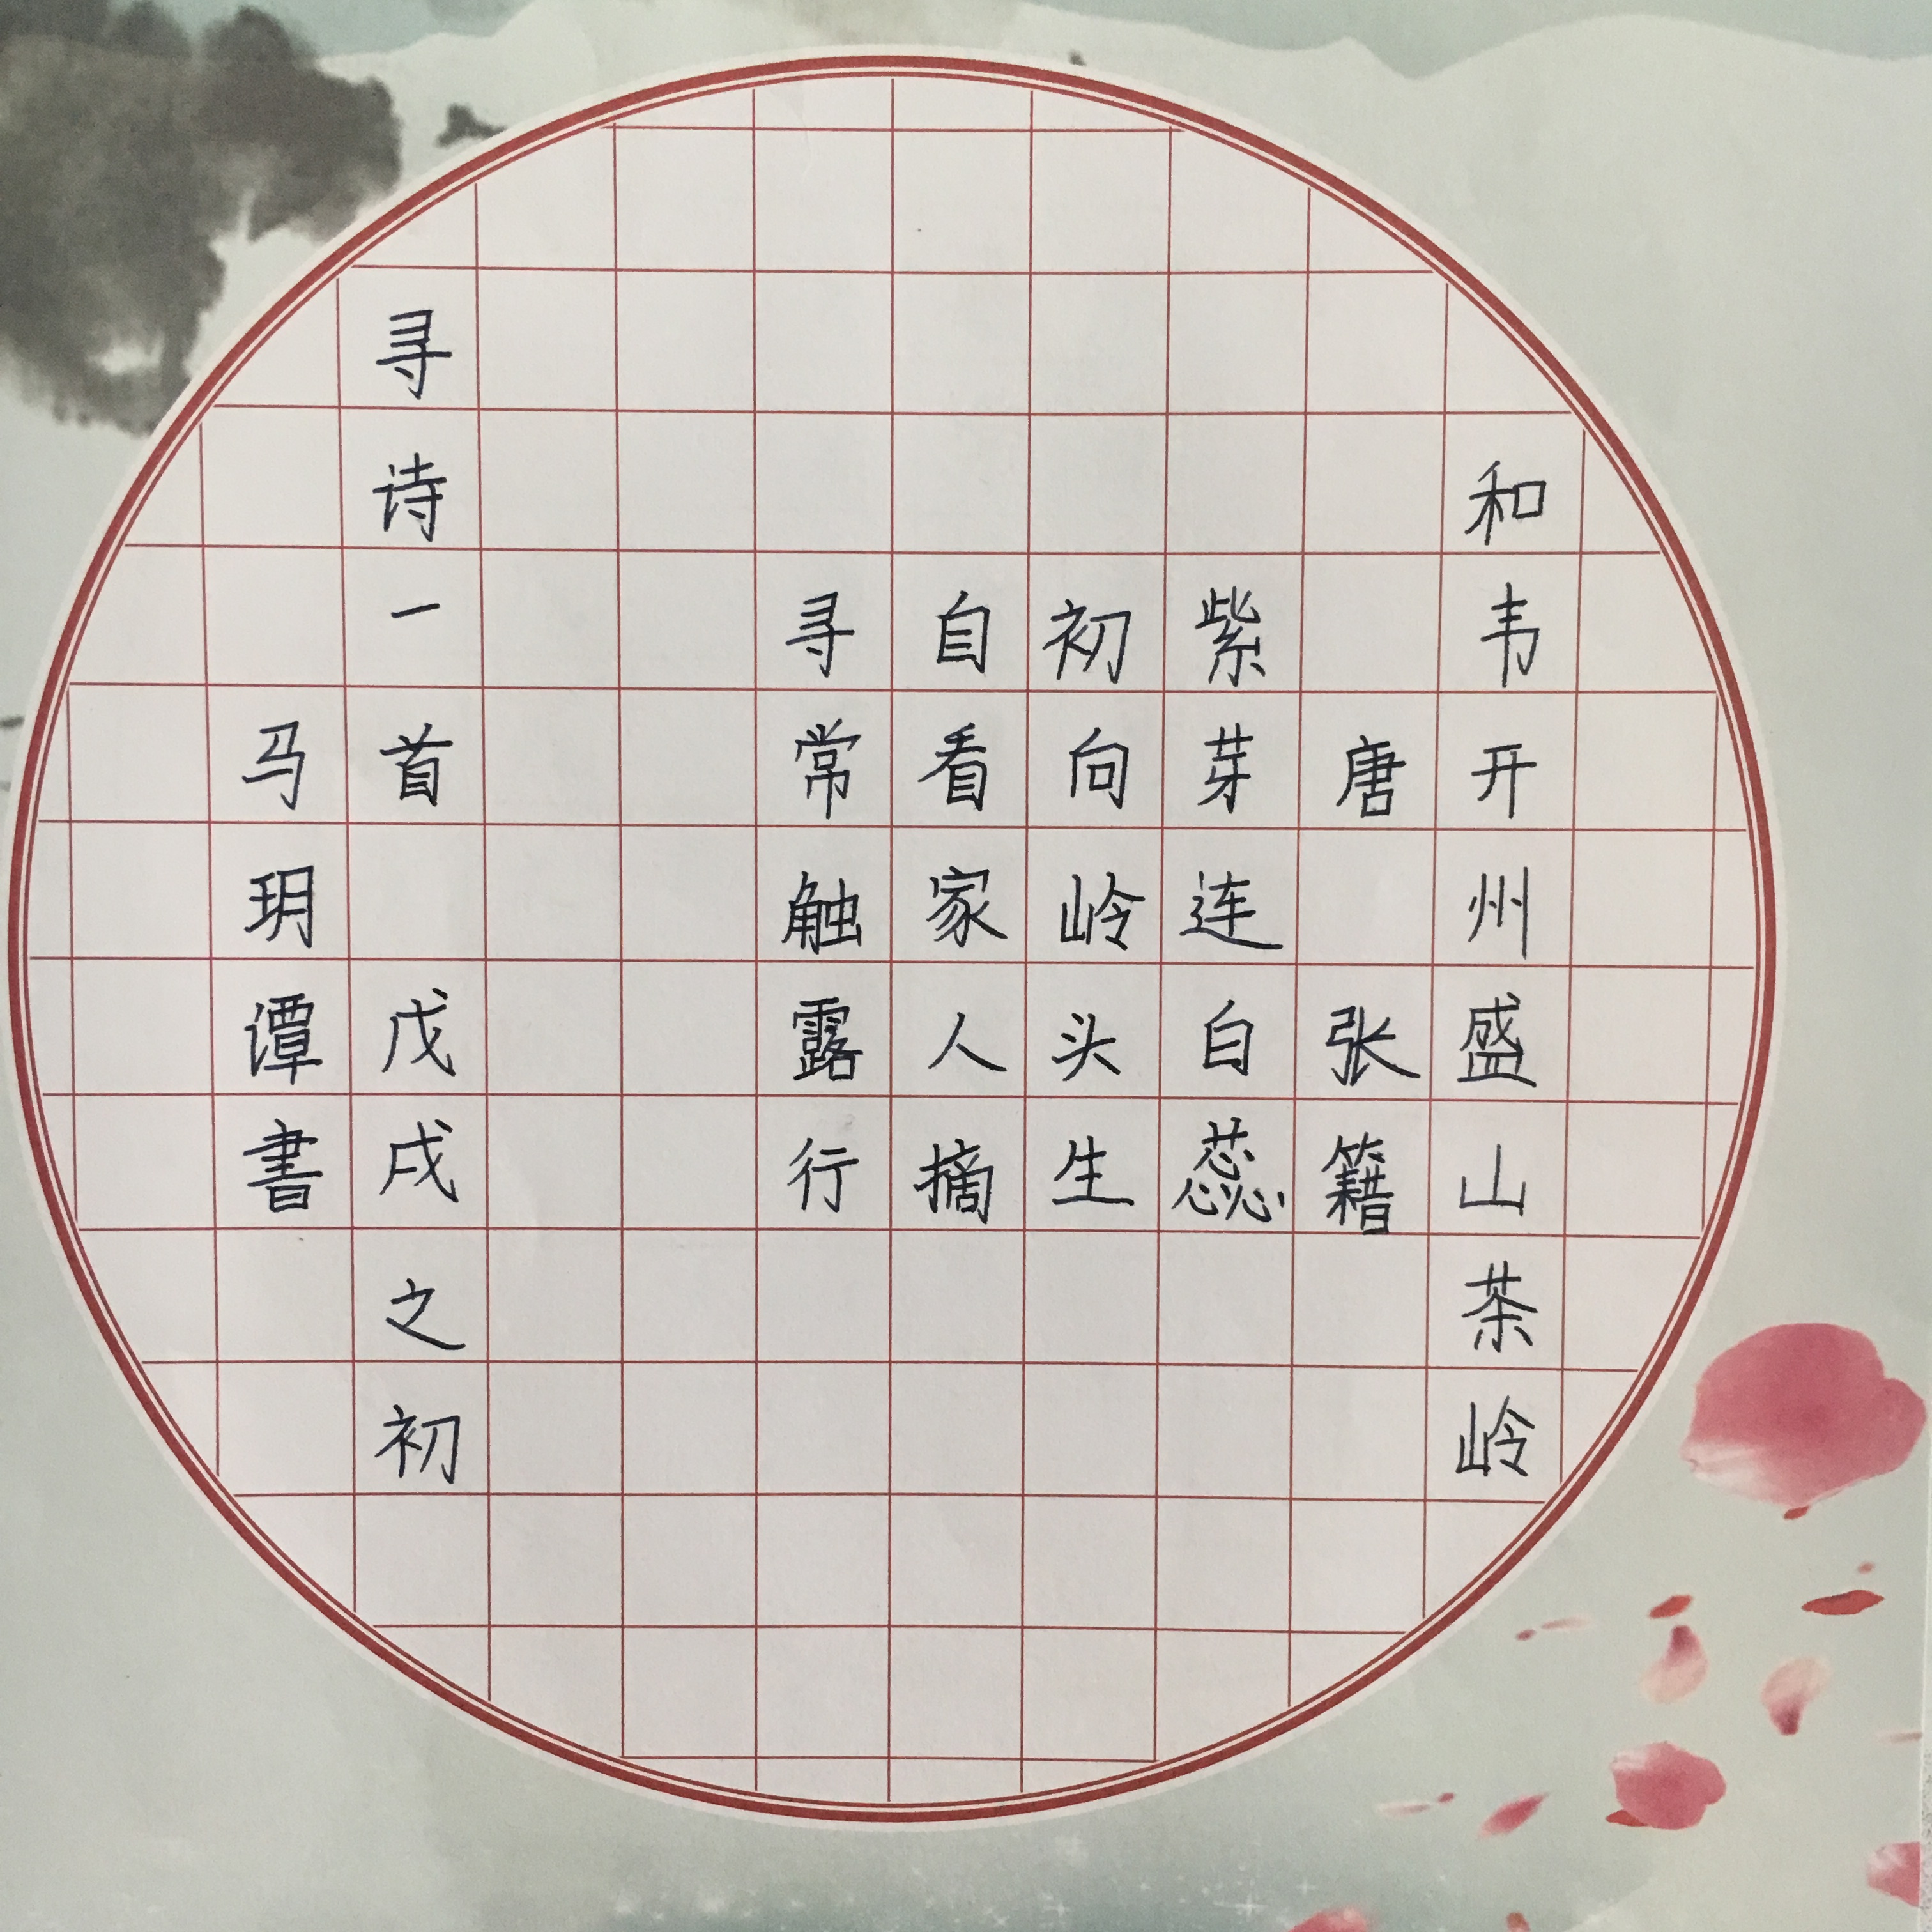 和韦开州盛山茶岭
唐 张籍
紫芽连白蕊
初向岭头生
自看家人摘
寻常触露行
寻诗一首 戊戌之初
马玥谭書